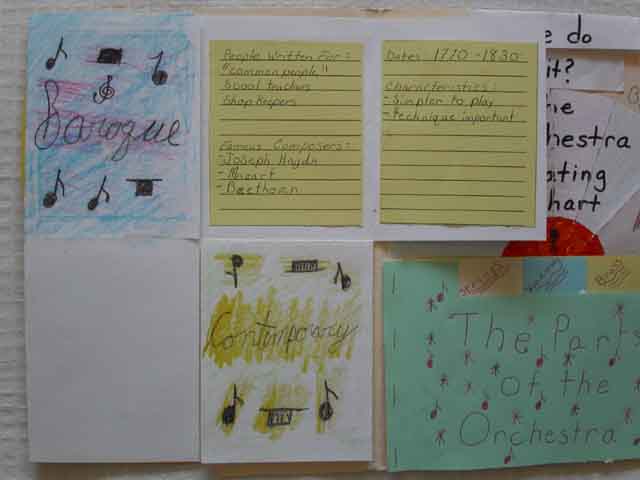 Baroque
People Written For:
"common people"
Scool teachers
Shop Keepers
Famous Composers:
-Joseph Haydn
-Mozart
-Beethoven
Dates 1770-1830
Characteristics:
-Simpler to play
-technique important
e do
it?
he
hestra
ating
hart
Contemporary
Strings
Brass
The Parts
of the
Orchestra